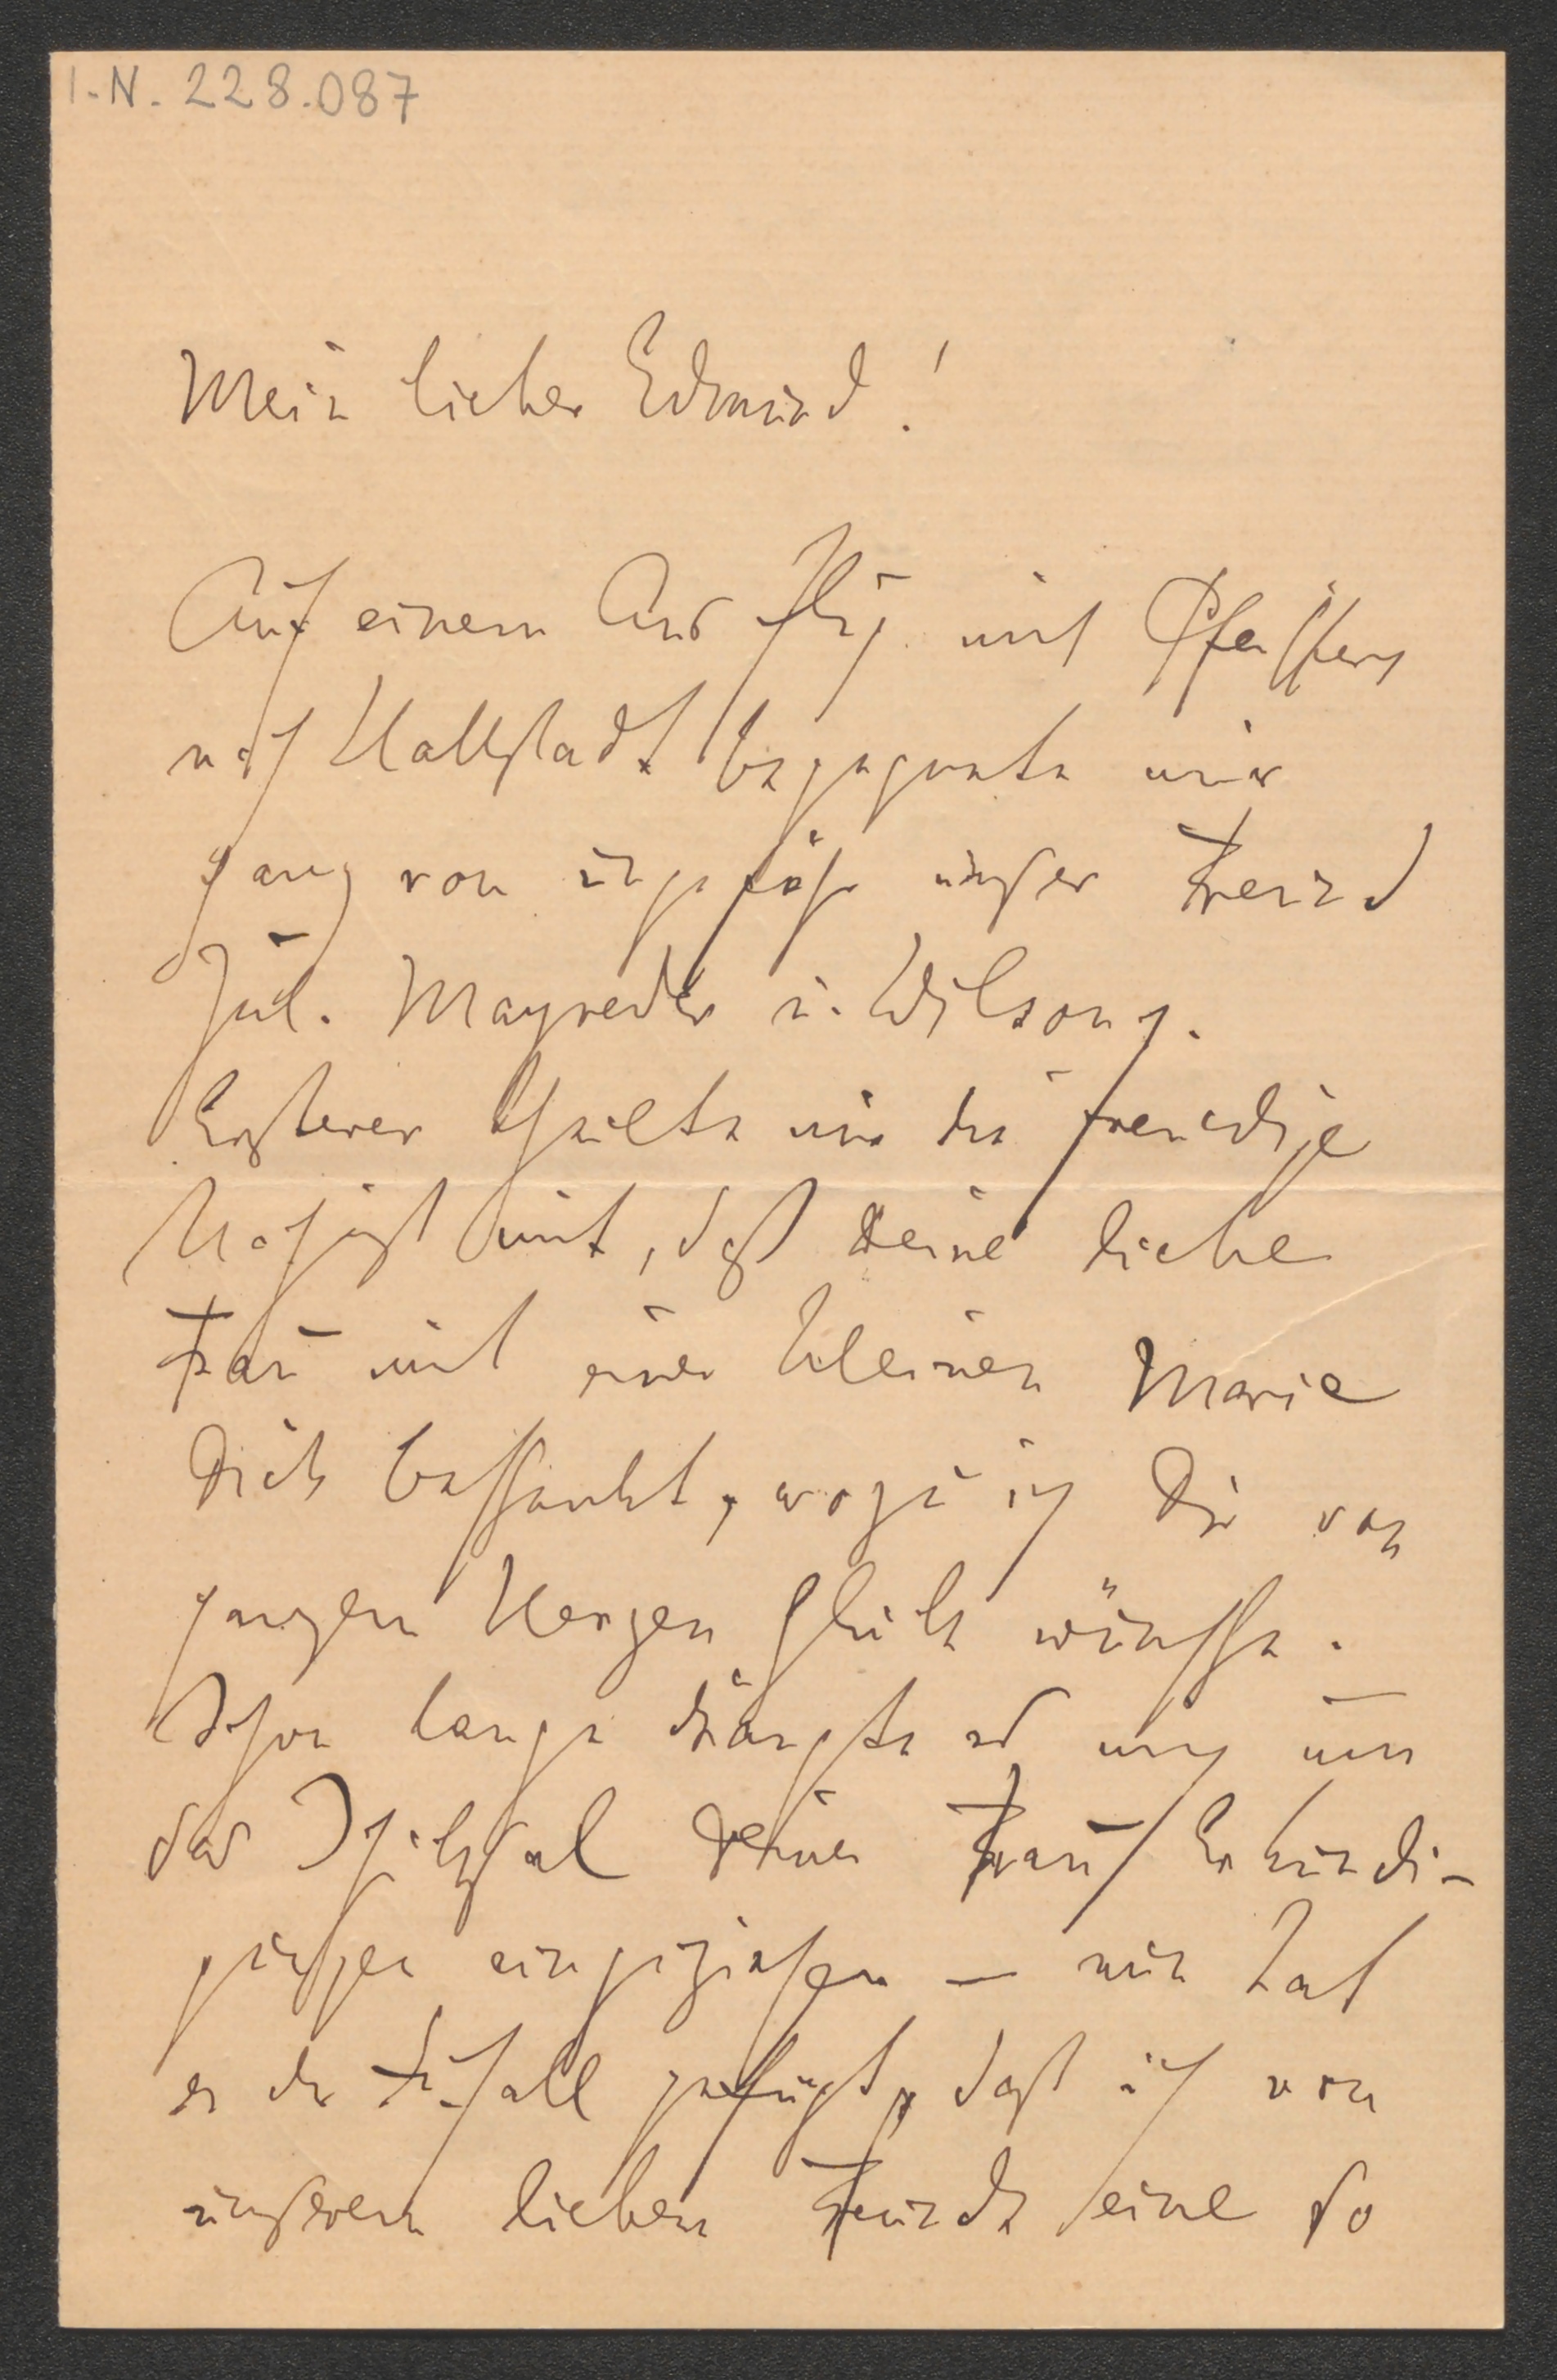 I.N. 228.087
Mein lieber Edmund!
Auf einem Ausflug mit Pfeiffers
nach Hallstadt begegnete mir
ganz von ungefähr unser Freund
Jul. Mayreder u. Wilsons.
Ersterer theilte mir die freudige
Nachricht mit, daß deine liebe
Frau mit einer kleinen Marie
Dich beschenkt, wozu ich Dir von
ganzem Herzen Glück wünsche.
Schon lange drängte es mich um
das Schicksal deiner Frau Erkundi-
gungen einzuziehen – nun hat
es der Zufall gefügt, daß ich von
unserem lieben Freunde eine so